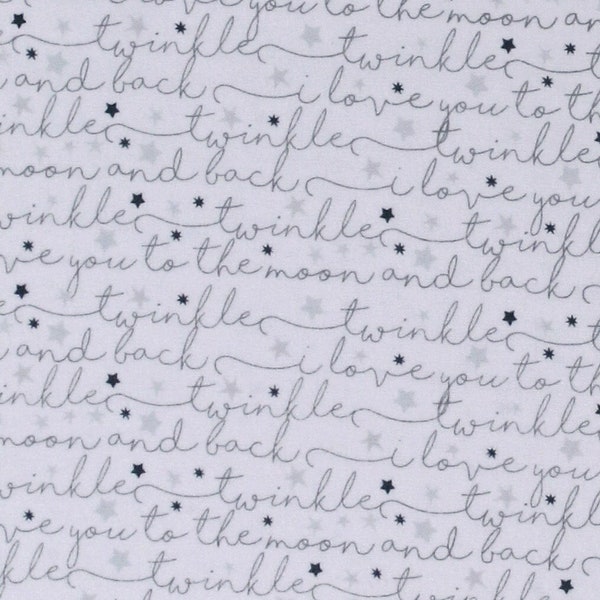 you to the moon an
twinkle twinkle
and back i love you to th
inkle twinkle twinkle
moon and back i love you
winkle twinkle twinkl
ve you to the moon and back
le twinkle twinkle
and back i love you to the
inkle twinkle twinkle
moon and back i love you
winkle twinkle twinkl
ve you to the moon and back
kle twinkle twinkle